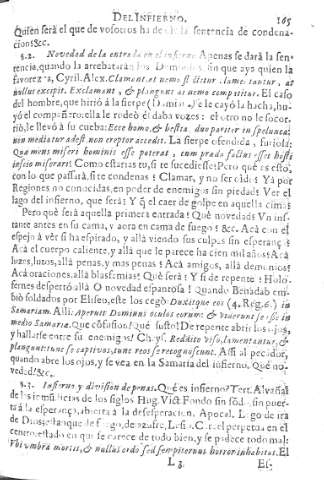 DEL INFIERNO. 165
Quien será el que de vosotros ha de la sentencia de condena-
cion? &c.
§. 2. Novedad de la entrada en el infierno. Apenas se dará la sen-
tencia, quando la arrebatarán los Demonios, sin que aya quien la
favorezca, Cyril. Alex. Clamant, et nemo
nullus excipit. Exclamant, & plangunt, ac nemo compatitur. El caso
del hombre, que hirió á la sierpe le cayó la hacha, hu-
yó el compañero: ella le rodeó él daba vozes: el otro no le socor-
rió, le llevó á su cueba: Ecce homo, & bestia duo pariter in spelunca:
non mediator adest non ereptor accedit. La sierpe ofendida, furiosa;
Que mens miseri hominis esse poterat, cum praedo fullus esset hostis
infeis moreret! Como estarias tu, si te sucediesse! Pero qué es esto,
con lo que passará, si te condenas! Clamar, y no ser oido! Yá por
Regiones no conocidas, en poder de enemigos sin piedad! Ver el
lago del infierno, que será! Y el caer de golpe en aquella cima!
Pero qué será aquella primera entrada! Qué novedad! Un ins-
tante antes en su cama, y aora en cama de fuego! &c. Acá con el
espejo á vér si ha espirado, y allá viendo sus culpas sin esperança!
Acá el cuerpo caliente, y allá que le parece ha cien mil años! Acá
luzes, lutos, allá penas, y mas penas! Acá amigos, allá demonios!
Acá oraciones, allá blasfemias! Qué será! Y si de repente! Holo-
fernes despertó allá O novedad espantosa! Quando Benadab em-
bió soldados por Eliseo, este los cegó Duxitque eos (4. Reg. 6.) in
Samariam. Alli. Aperuit Dominus oculos eorum: & viderunt se esse in
medio Samariae. Que cõfusion! Qué susto! De repente abrir los ojos,
y hallarse entre su enemigos! Chrys. Reddito viso, lamentantur, &
plangunt: tunc se captivos, tunc reos se recognoscunt. Assi al pecador,
quando abre los ojos, y se vea en la Samaria del infierno. Qué no-
vedad! &c.
§. 3. Infierno, y division de penas. Qué es infierno? Tert. Alvañal
de las inmundicias de los siglos Hug. Vict. Fondo sin fõdo, sin puer-
ta á la esperança, abierta á la desesperacion. Apocal. Lago de ira
de Dios; estanque de fuego, de azufre, el perpetua en el
centro: estado en que se carece de todo bien, y se padece todo mal:
Ubi umbra mortis, & nullus ordo sed sempiternus horror inhabitat. El
L 3. Es-